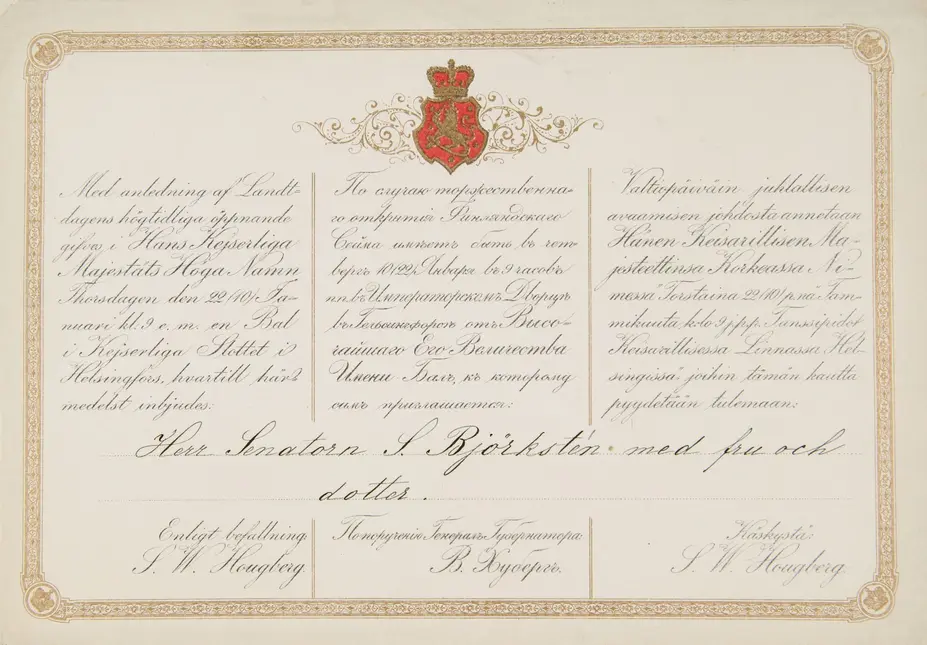 Med anledning af Landt-
dagens högtidliga öppnande
gifves i Hans Kejserliga
Majestäts Höga Namn
Thorsdagen den 22/10/ Ja-
nuari kl. 9 e. m. en Bal
i Kejserliga Slottet i
Helsingfors, hvartill här-
medelst inbjudes:
По случаю торжественна-
го открытія Финляндскаго
Сейма имѣетъ быть, въ чет-
вергъ 10/22/ Января въ 9 часовъ
п.п. въ Императорскомъ Дворцѣ
въ Гельсингфорсѣ отъ Высо-
чайшаго Его Величества
Имени Балъ, къ которому
симъ приглашается:
Valtiopäiväin juhlallisen
avaamisen johdosta annetaan
Hänen Keisarillisen Ma-
jesteettinsa Korkeassa Ni-
messä Torstaina 22/10/ p:nä Tam-
mikuuta, k:lo 9 j.p.p. Tanssipidot
Keisarillisessa Linnassa Hel-
singissä joihin tämän kautta
pyydetään tulemaan:
Herr Senatorn S. Björkstén med fru och
dotter.
Enligt befallning:
S. W. Hougberg.
По порученію Генералъ Губернатора:
В. Хубергъ.
Käskystä:
S. W. Hougberg.